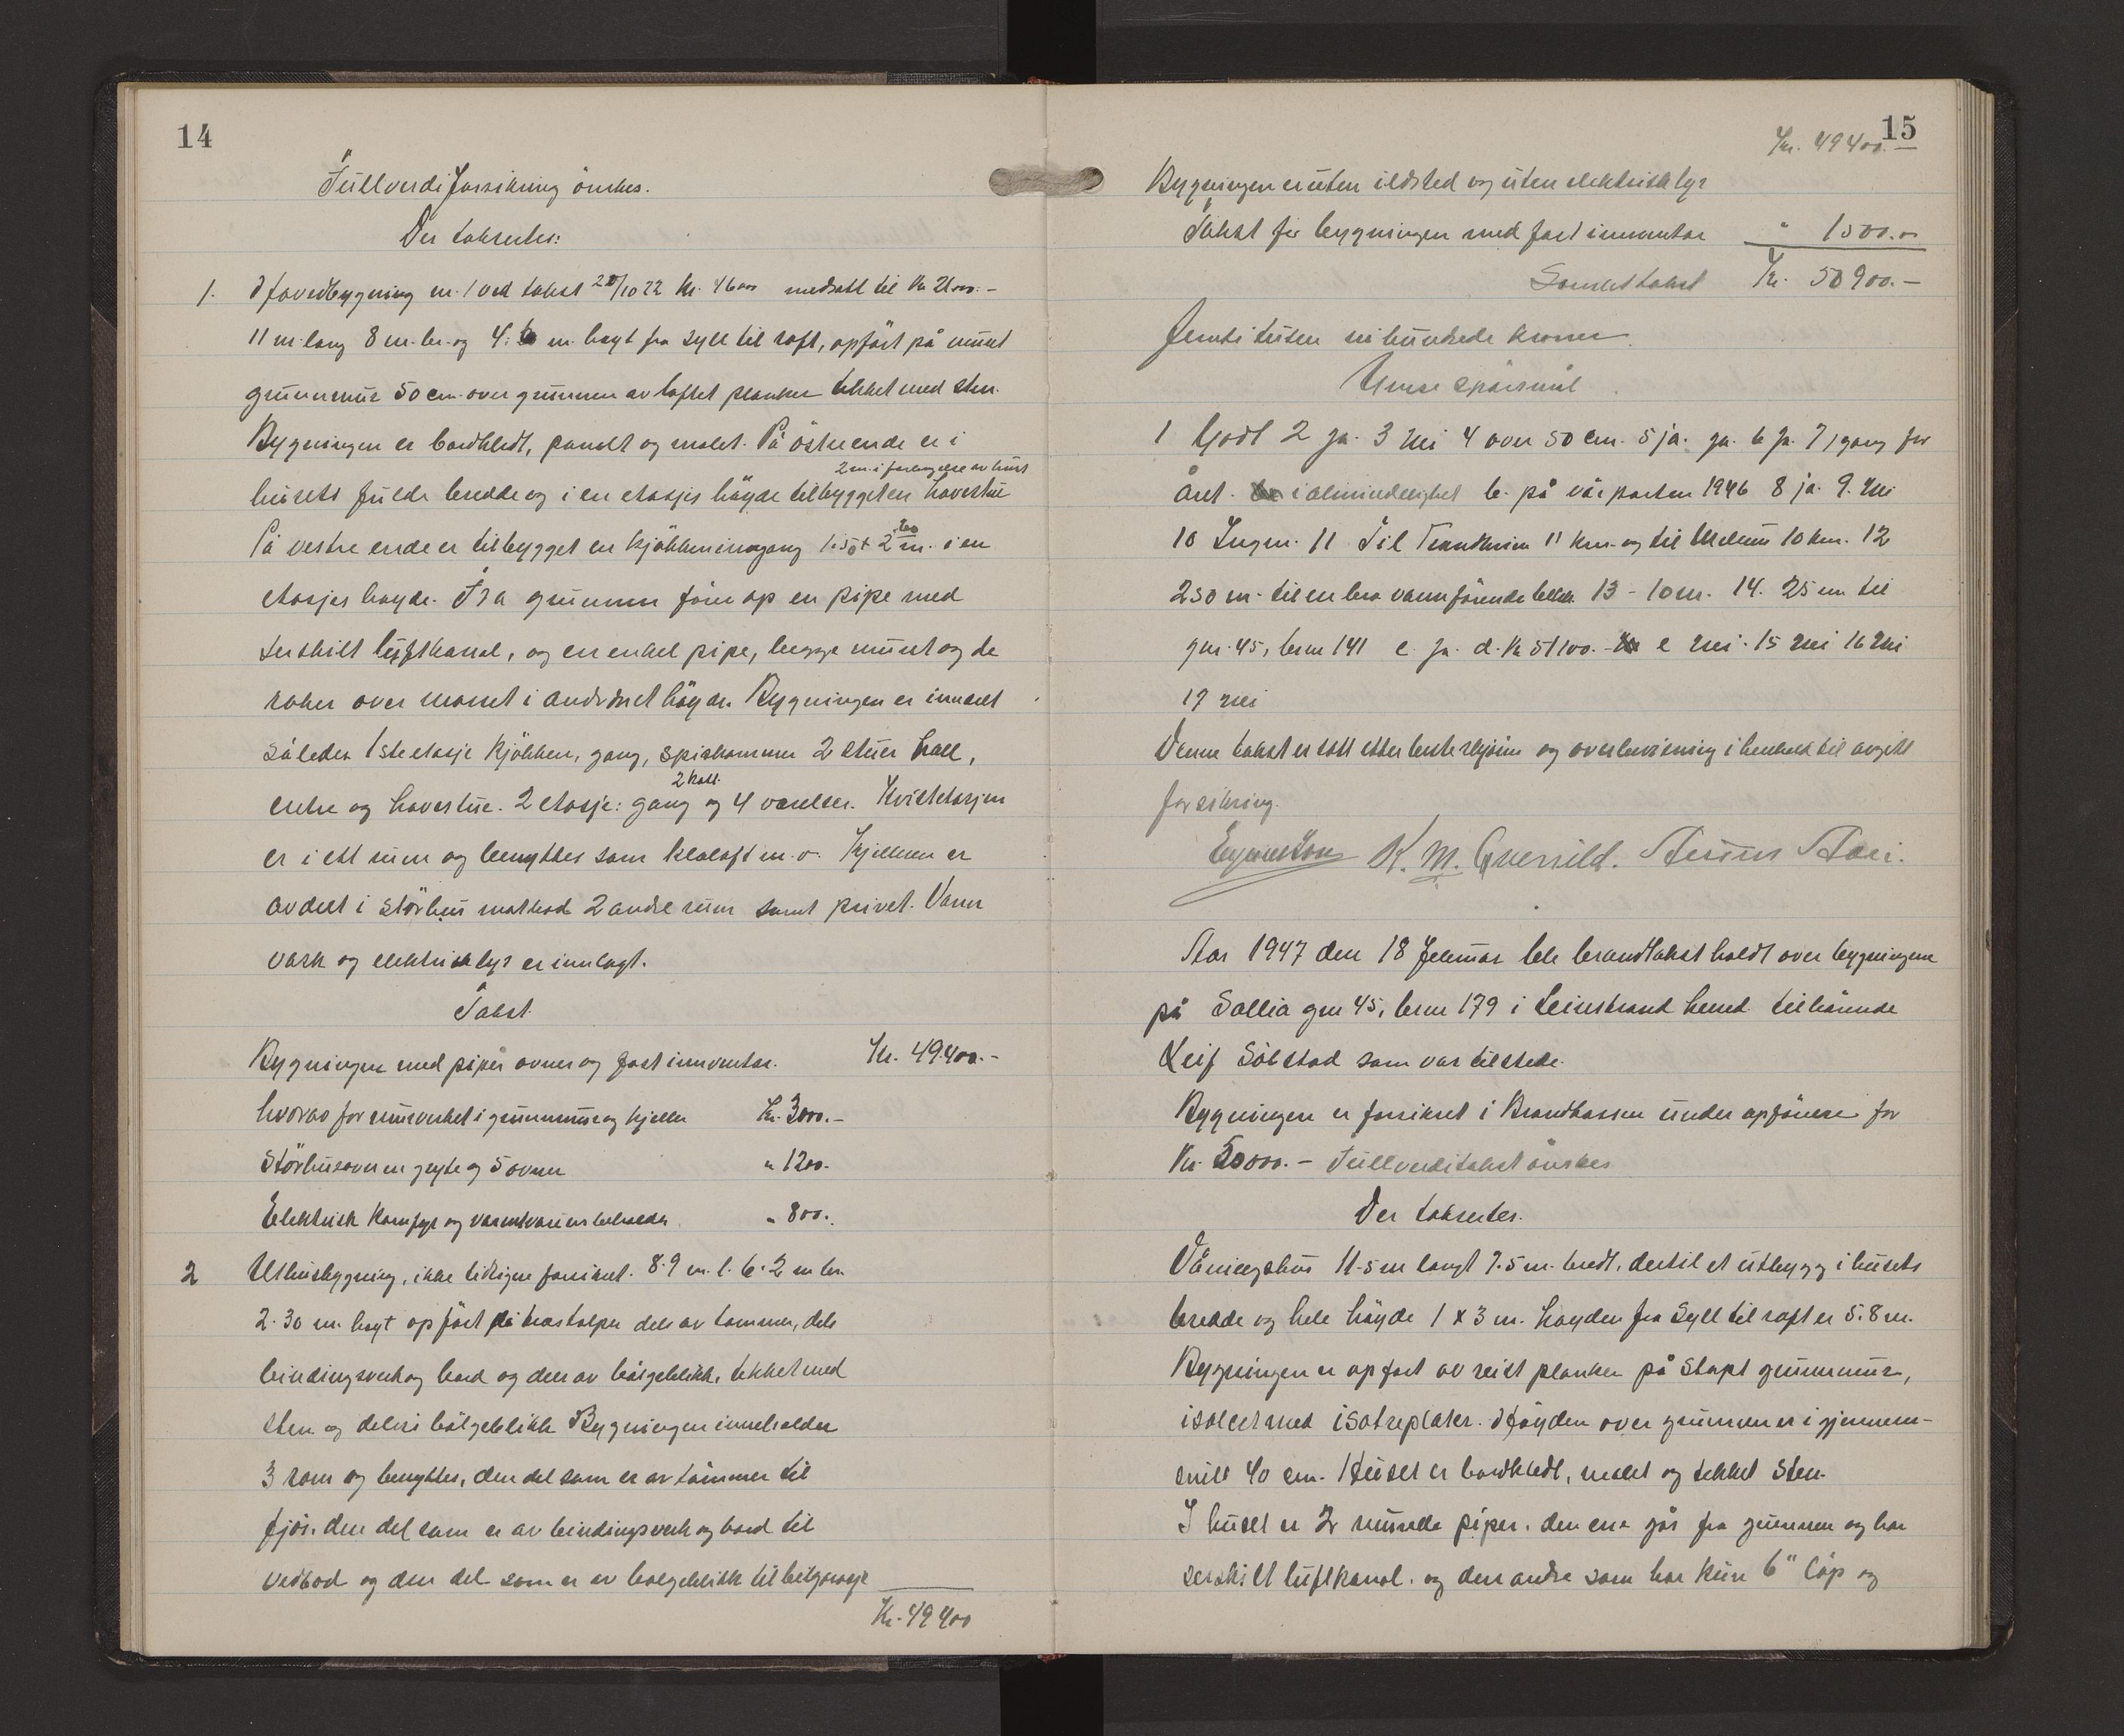 14
Fullverdiforsikring önskes.
Der taksertes:
1. Hovedbygning nr. 1 ved takst 20/10 22 kr. 46000 nedsatt til kr 21000.-
11 m lang 8 m. br. og 4. 6 m. høyt fra syll til raft, opfört på muret
grunnmur 50 cm. over grunnen av laftet planker tekket med sten.
Bygningen er bordkledt, panelt og malet. På östre ende er i
2 m. i forlengelse av huset
husets fulde bredde og i en etasjes höyde tilbygget en havestue
På vestre ende er tilbygget en kjökkeninngang 1.50 + 2.20 m. i en
etasjes høyde. Fra grunnen förer op en pipe med
serskilt luftkanal, og en enkel pipe, begge muret og de
raker over mönet i anordnet höyde. Bygningen er innredet
således 1ste etasje kjökken, gang, spiskammer 2 stuer hall,
2 kott
entre og havestue. 2 etasje: gang og 4 værelser. Kvistetasjen
er i ett rum og benyttes som kleloft m.v. Kjelleren er
avdelt i störhus matbod 2 andre rum samt privet. Vann
vask og elektrisk lys er innlagt.
Takst.
Bygningen med piper ovner og fast innventar. Kr. 49400.-
hvorav for murverket i grunnmur og kjeller Kr. 3000.-
Störhusovn en gryte og 5 ovner " 1200.
Elektrisk komfyr og varmtvannsbeholder " 800.
2 Uthusbygning, ikke tidligere forsikret. 8.9 m. l. 6.2 m br.
2.30 m. høyt opfört på trestolper dels av tømmer, dels
bindingsverk og bord og dels av bölgeblikk, tekket med
sten og delvis bölgeblikk Bygningen inneholder
3 rom og benyttes, den del som er av tömmer til
fjös, den del som er av bindingsverk og bord til
vedbod og den del som er av bølgeblikk til bilgarasje
Kr. 49400
15
Kr. 49400.-
Bygningen er uten ildsted og uten elektrisk lys
Takst for bygningen med fast innventar " 1500.-
Samlet takst Kr. 50900.-
femti tusen ni hundrede kroner.
Unse spörsmål
1 Godt 2 ja. 3 Nei 4 over 50 cm. 5 ja. ja. 6 ja. 7 1 gang for
året. i almindelighet b. på vårparten 1946 8 ja. 9. Nei
10 Ingen. 11 Til Trondheim 11 km. og til Melhus 10 km. 12
250 m. til en bra vannförende bekk 13 - 10 m. 14. 25 m til
gnr. 45, brnr 141 c. ja. d. kr 51100.- e nei. 15 nei 16 nei
17 nei
Denne takst er satt etter beste skjönn og overbevisning i henhold til avgitt
forsikring.
K. M. Qvenild.
Aar 1947 den 18 februar ble branntakst holdt over bygningene
på Sollia gnr 45, brnr 179 i Leinstrand herred tilhörende
Leif Sölstad som var tilstede.
Bygningen er forsikret i Brandkassen under opförelse for
Kr. 20000.- Fullverditakst önskes
Der taksertes.
Våningshus 11.5 m langt 7.5 m. bredt, dertil et utbygg i husets
bredde og hele höyde 1 x 3 m. Høyden fra Syll til raft er 5.8 m.
Bygningen er opfört av reist planker på Støpt grunnmur,
isolert med isotreplater. Höyden over grunnen er i gjennem-
snitt 40 cm. Huset er bordkledt, malet og tekket Sten.
I huset er 2 murede piper. den ene går fra grunnen og har
serskilt luftkanal. og den andre som har kun 6" löp og